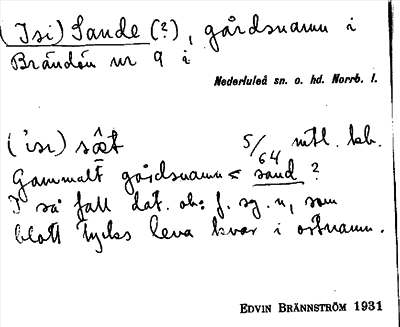 (Isi) Sande (?), gårdsnamn i
Brändön nr 9 i
Nederluleå sn. o. hd. Norrb. l.
5/64 mtl. kb.
Gammalt gårdsnamn < sand ?
I så fall dat. ob. f. sg. n, som
blott tycks leva kvar i ortnamn.
EDVIN BRÄNNSTRÖM 1931